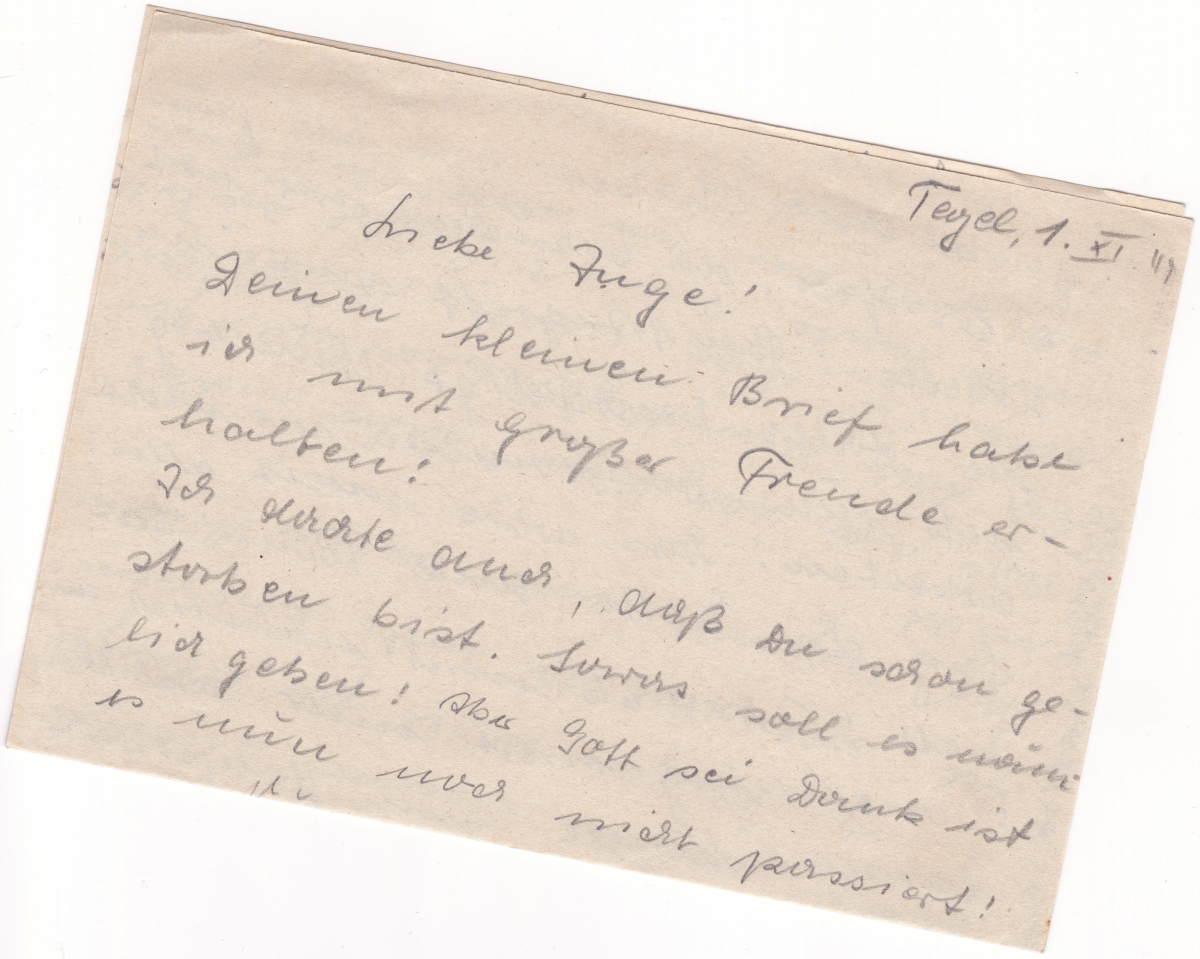 Tegel, 1. XI.
Liebe Inge!
Deinen kleinen Brief habe
ich mit großer Freude er-
halten!
Ich dachte auch, daß Du schon ge-
storben bist. Sowas soll es näm-
lich geben! Aber Gott sei Dank ist
es nun noch nicht passiert!